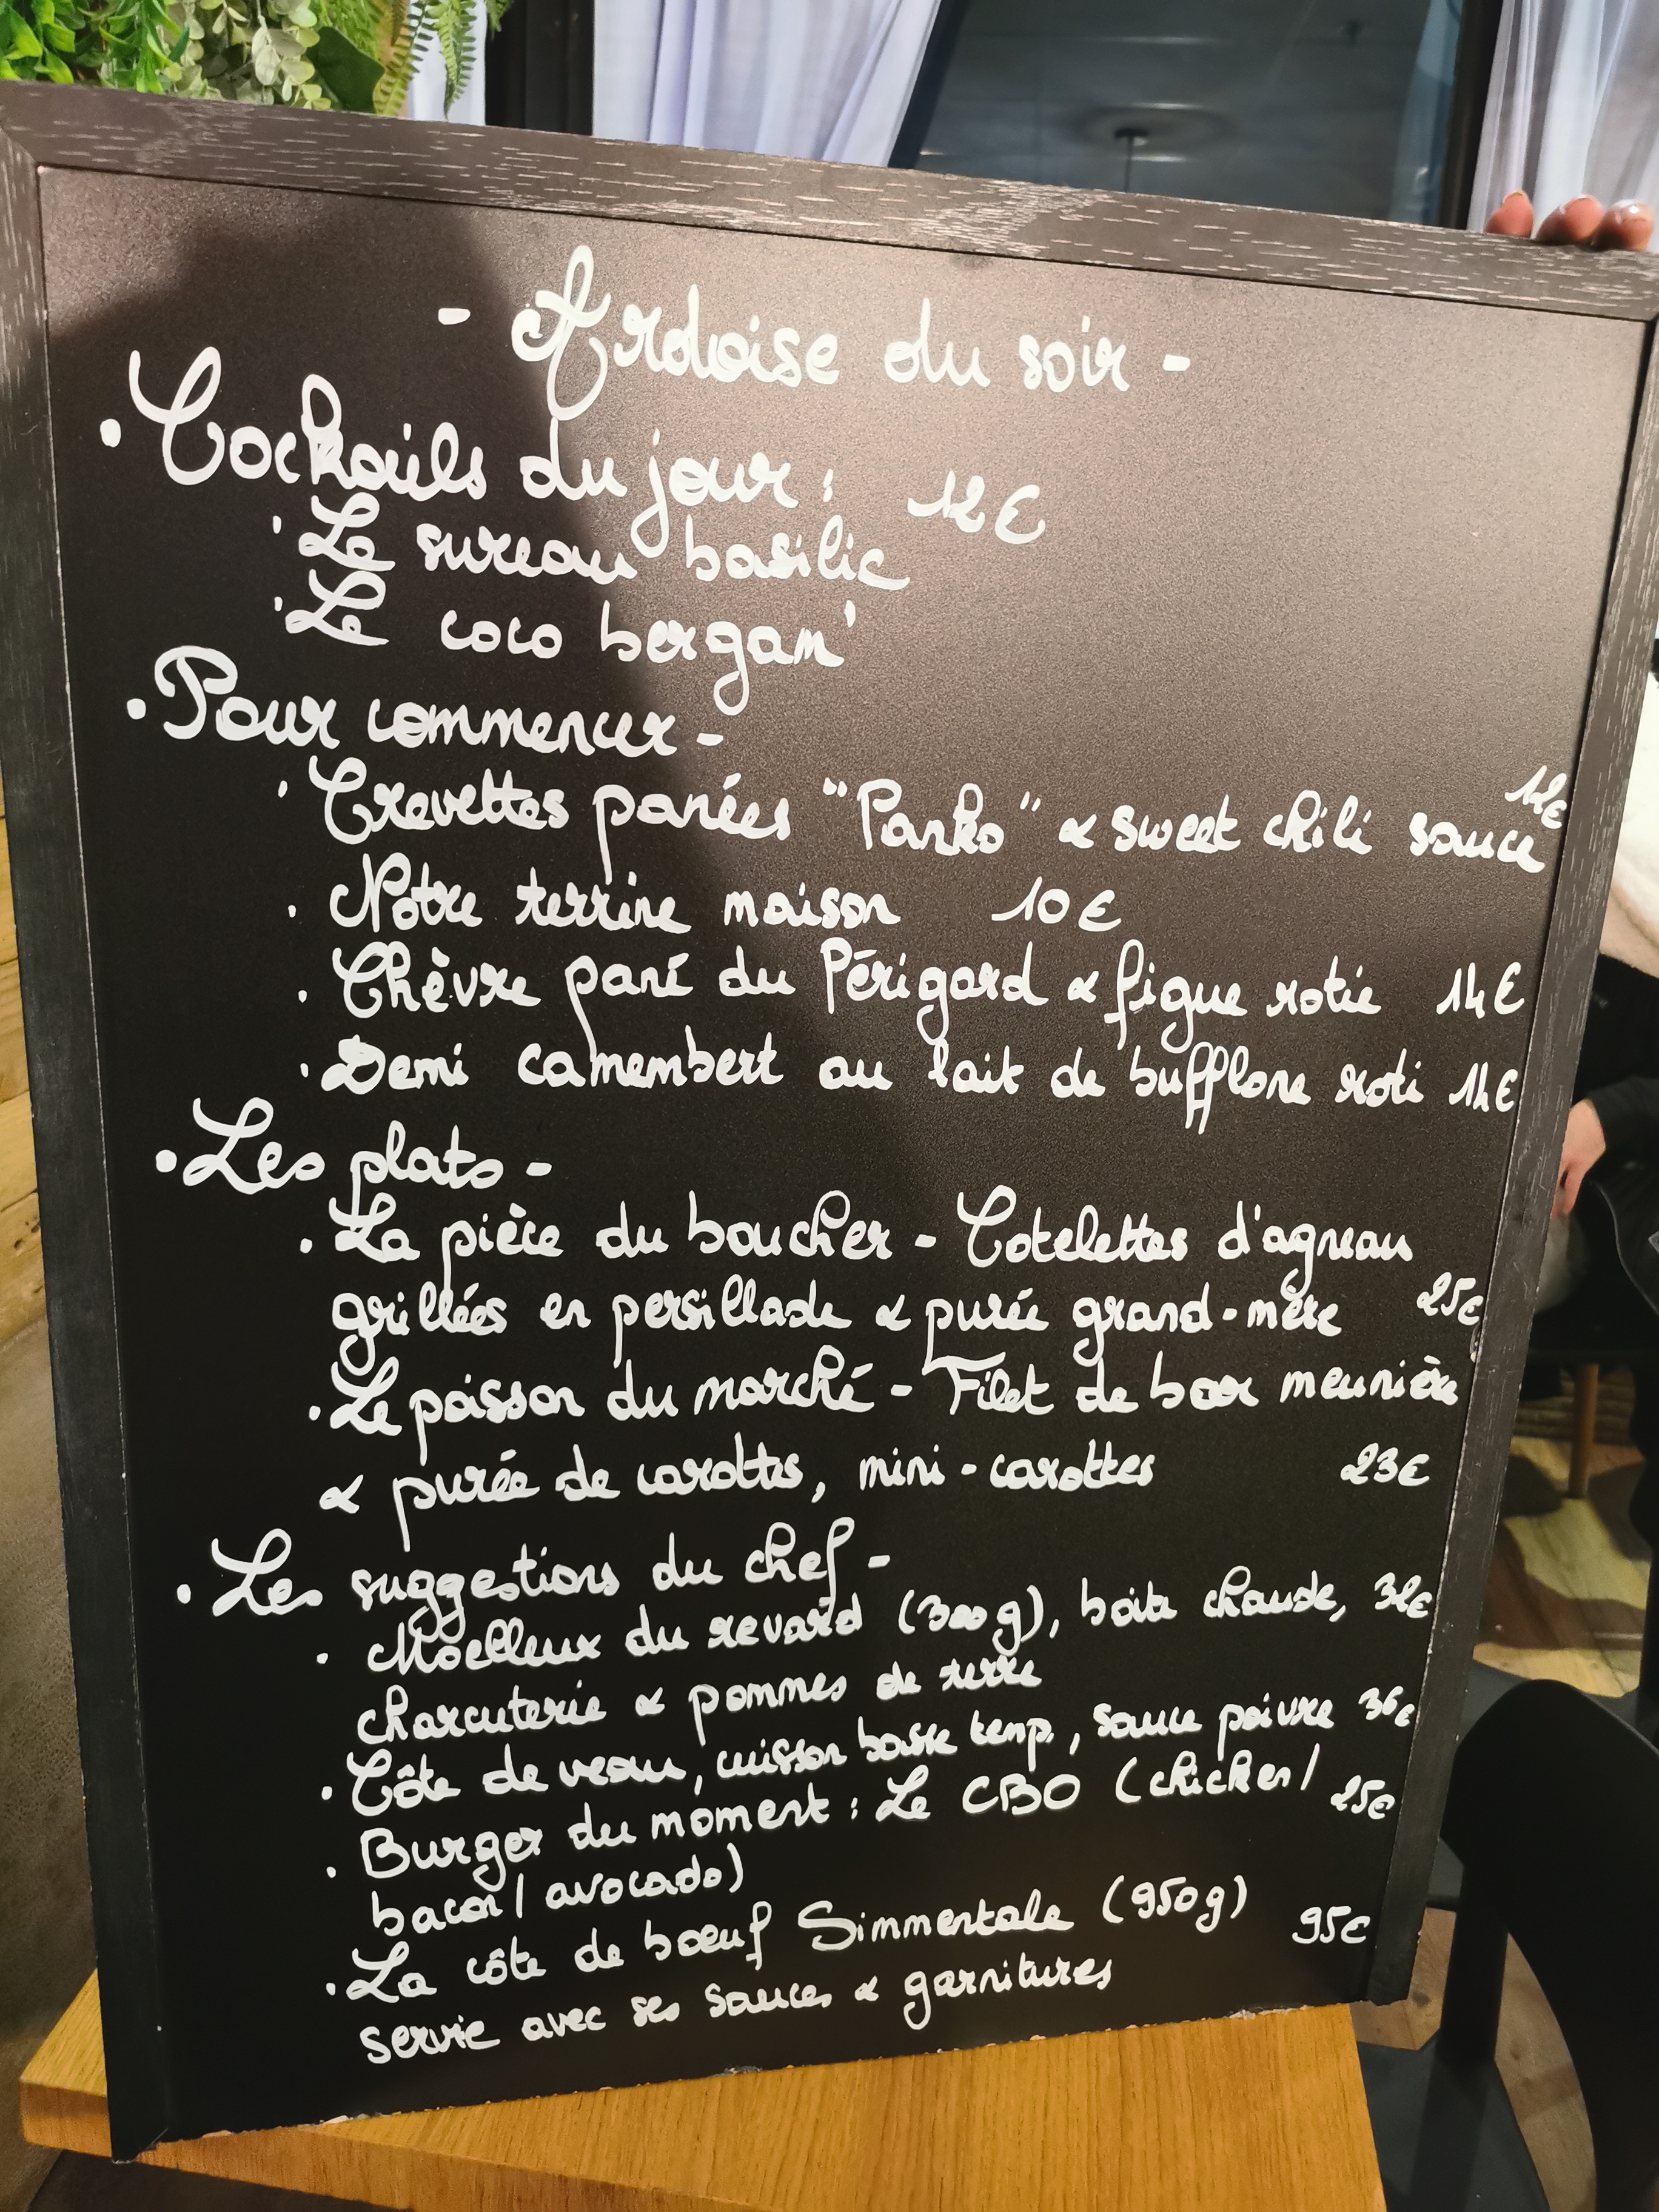 - Ardoise du soir -
• Cocktails du jour : 12€
· Le sureau basilic
· Le coco bergam'
• Pour commencer -
· Crevettes panées "Panko" & sweet chili sauce 12€
· Notre terrine maison 10€
· Chèvre pané du Périgord & figue rotie 14€
· Demi camembert au lait de bufflone roti 14€
• Les plats -
· La pièce du boucher - Cotelettes d'agneau
grillées en persillade & purée grand-mère 25€
· Le poisson du marché - Filet de bar meunière
& purée de carottes, mini-carottes 23€
• Les suggestions du chef -
· Moelleux du revard (300g), boite chaude, 32€
charcuterie & pommes de terre
· Côte de veau, cuisson basse temp., sauce poivre 36€
· Burger du moment : Le CBO (chicken/ 25€
bacon/avocado)
· La côte de boeuf Simmentale (950g) 95€
servie avec ses sauces & garnitures